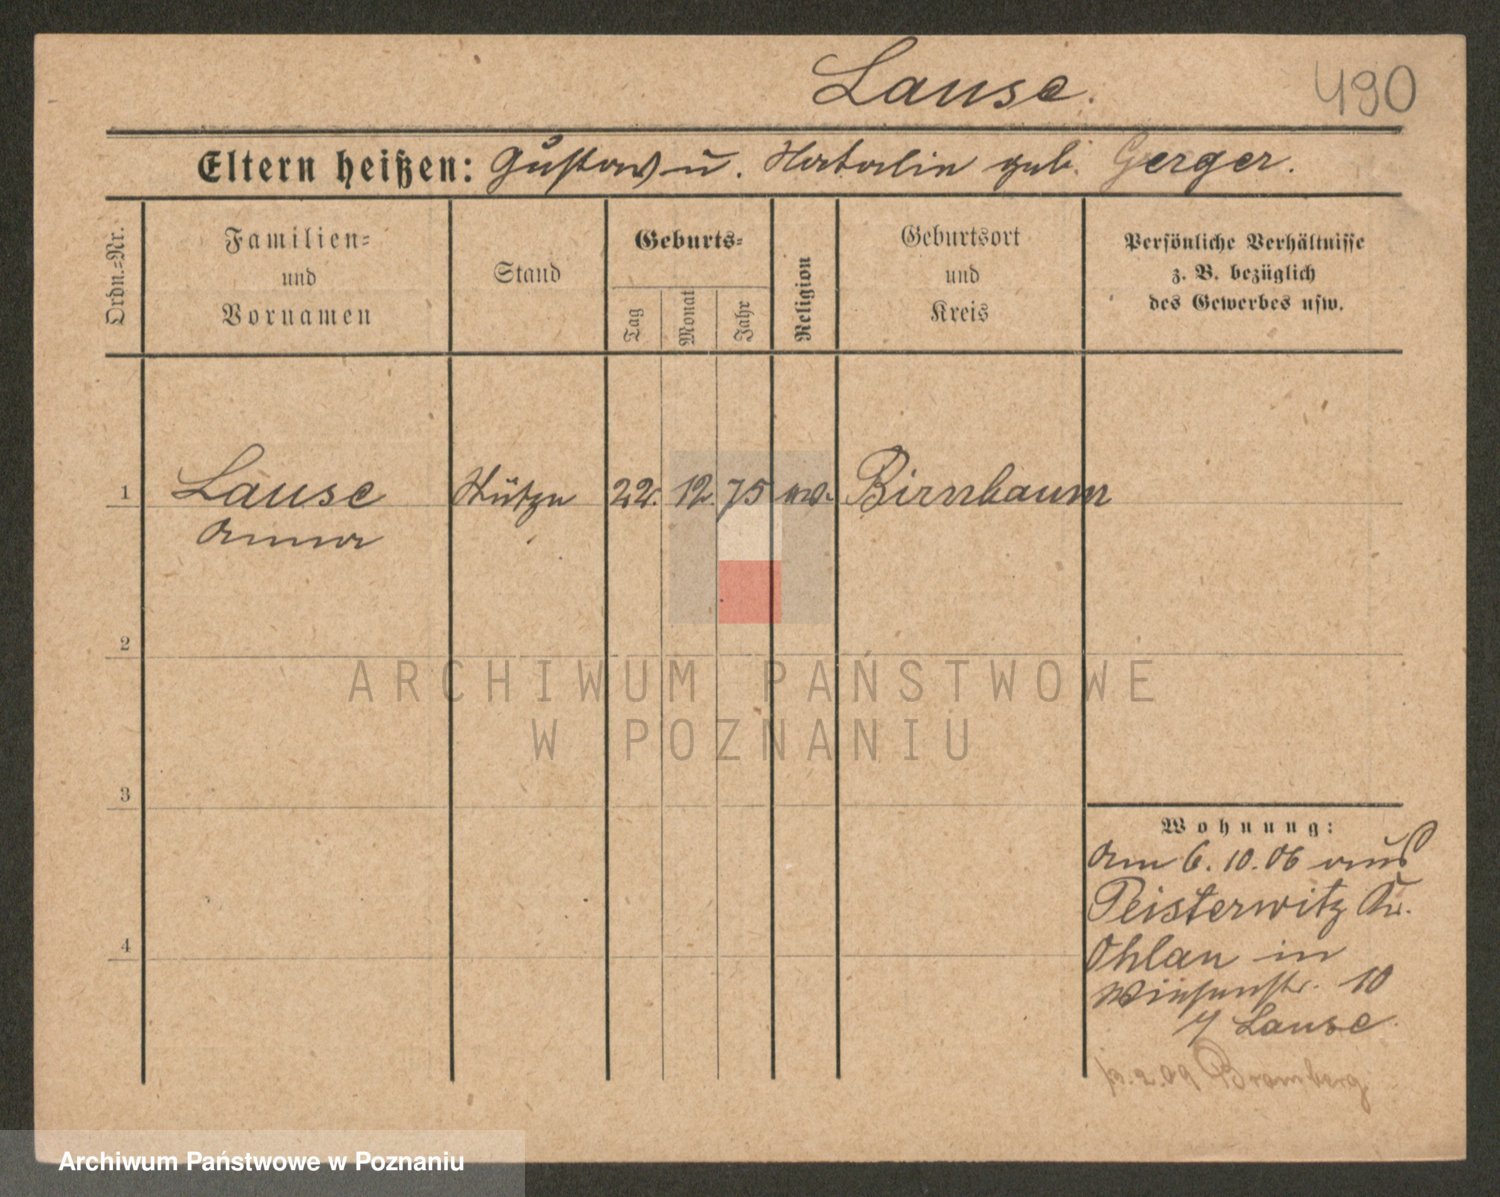 Lause.
490
Eltern heißen: Gustav u. Natalie geb. Gerger.
Ordn.-Nr.
Familien-
und
Vornamen
Stand
Geburts-
Tag
Monat
Jahr
Religion
Geburtsort
und
Kreis
Persönliche Verhältnisse
z. B. bezüglich
des Gewerbes usw.
1
Lause
Anna
Stütze
22. 12. 75
ev.
Birnbaum
2
3
4
Wohnung:
Am 6. 10. 06 aus
Peisterwitz Kr.
Ohlau in
Wiesenstr. 10
Lause
2.09 Bromberg
ARCHIWUM PAŃSTWOWE
W POZNANIU
Archiwum Państwowe w Poznaniu